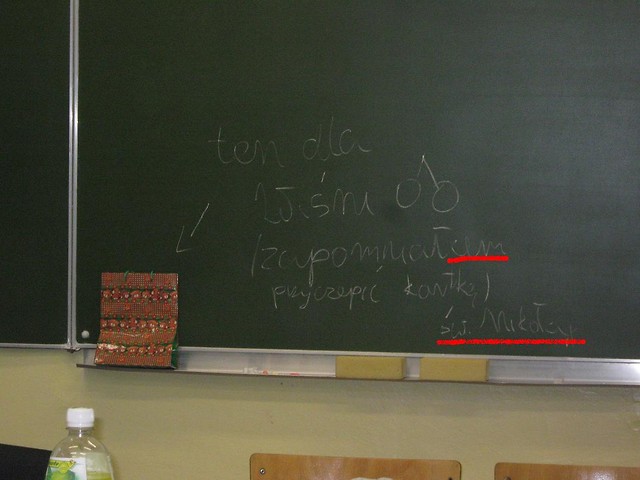 ten dla
Wiśni
(zapomniałem
przyczepić kartkę)
św. Mikołaj